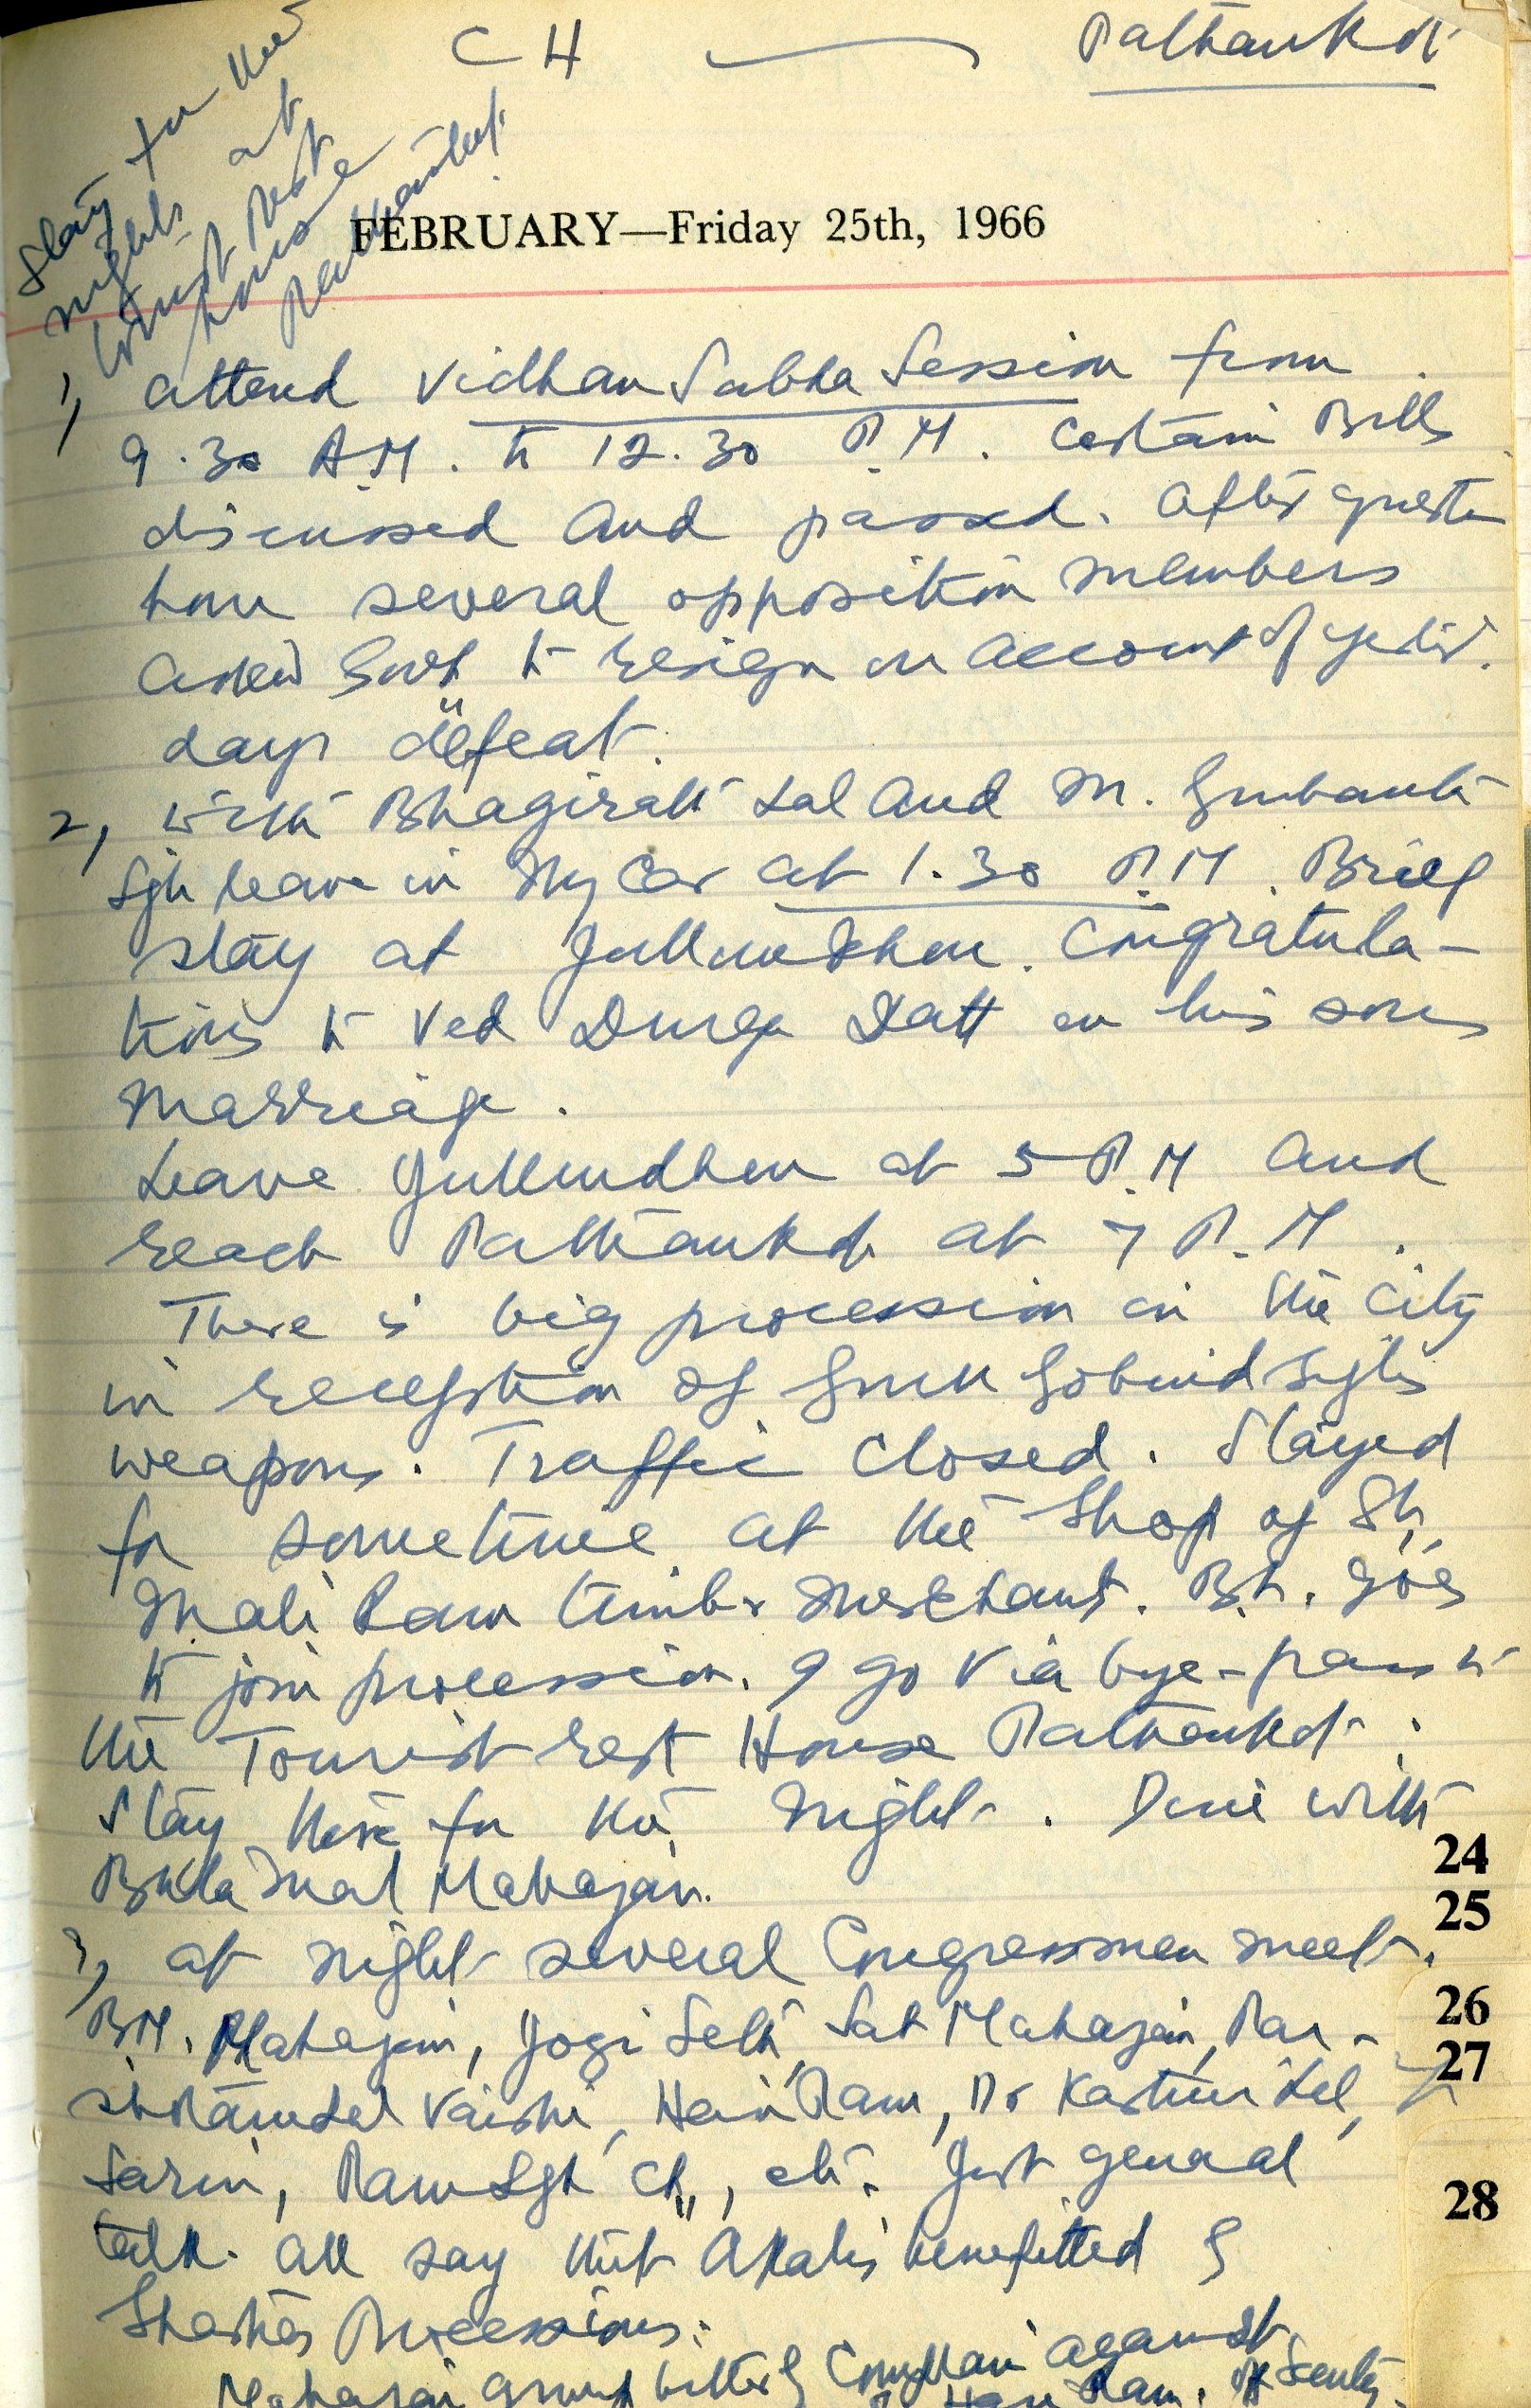 CH — Pathankot
Stay for the
night at
Tourist Rest
house
Pathankot.
FEBRUARY—Friday 25th, 1966
1, Attend Vidhan Sabha Session from
9.30 A.M. to 12.30 P.M. Certain Bills
discussed and passed. After question
hour several opposition members
asked Govt to resign on account of yester
days defeat.
2, With Bhagirath Lal and M. Gurbanta
Sgh leave in my Car at 1.30 P.M. Brief
stay at Jullundhur. Congratula-
tions to Ved Durga Datt on his sons
marriage.
Leave Jullundhur at 5 P.M and
reach Pathankot at 7 P.M.
There is big procession in the city
in reception of Guru Gobind Sighs
weapons. Traffic closed. Stayed
for sometime at the Shop of Sh.
Mali Ram timber merchant. B.L. goes
to join procession. I go via bye-pass to
the Tourist rest House Pathankot.
Stay here for the night. Dine with
Mal Mahajan.
3, At night several Congressmen meet.
B.M. Mahajan, Jogi Seth, Sat Mahajan, Par-
shotamLal Vaishi, Hari Ram, Dr Kasturi Lal,
Sarin, Ram Sgh Ch, etc. Just general
talk. All say that Akalis benefitted
Shastras Processions.
Mahajan group bitterly complain against
Hari Ram.
24
25
26
27
28